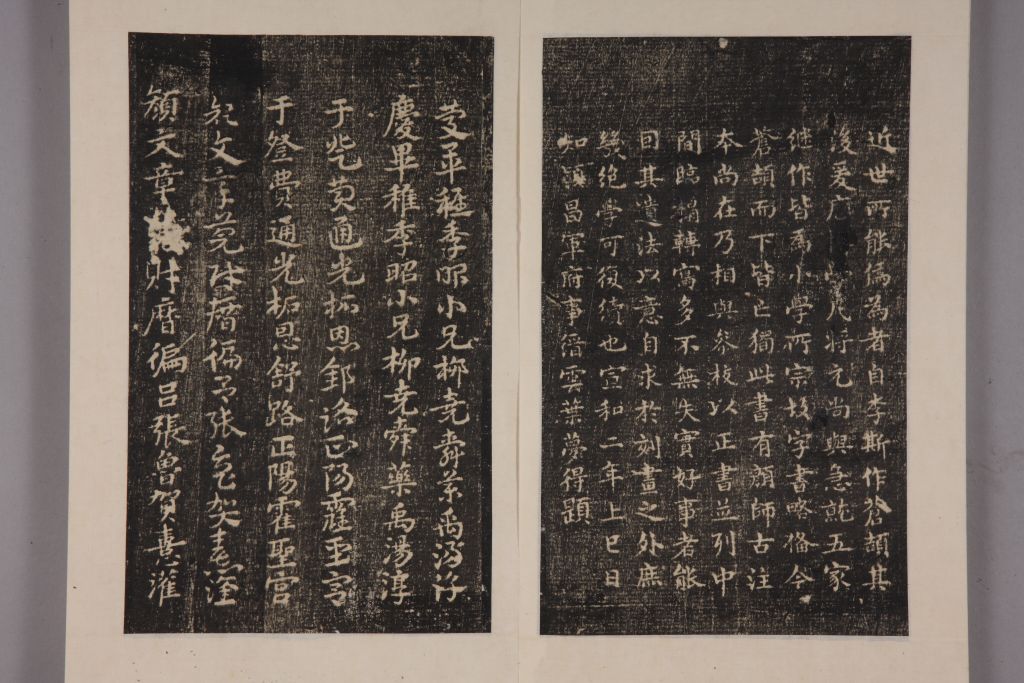 近世所能僞為者自李斯作蒼頡其
後爰厯 凡將元尚與急就五家
継作皆為小學所宗故字書略俻今
蒼頡而下皆亡獨此書有顔師古注
本尚在乃相與叅挍以正書並列中
間臨搨轉寫多不無失實好事者能
因其遺法以意自求於刻畫之外庶
幾絶學可復續也宣和二年上巳日
知潁昌軍府事縉雲葉夢得題
慶 李昭小兄柳堯舜藥禹湯淳
慶畢稚李昭小兄柳尭舜藥禹湯淳
于 費通光柘恩舒路正陽霍聖宫
于登費通光柘恩舒路正陽霍聖宫
文章 偏吕張魯賀憙灌
顔文章 財厝偏吕張魯賀憙灌